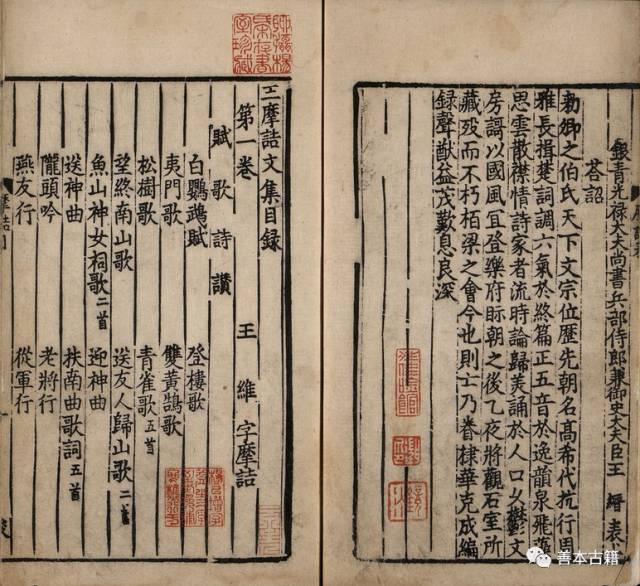 銀青光禄大夫尚書兵部侍郎兼御史大夫臣王縉表上
荅詔
勑卿之伯氏天下文宗位歴先朝名髙希代抗行周
雅長揖楚詞調六氣於終篇正五音於逸韻泉飛藻
思雲散襟情詩家者流時論歸羙誦於人口乆欝文
房謌以國風冝登樂府眎朝之後乙夜將觀石室所
藏殁而不朽栢梁之會今也則亡乃眷棣華克成編
録聲猷益茂歎息良深
王摩詰文集目録
第一卷 王維字摩詰
賦歌詩讃
白鸚鵡賦 登樓歌
夷門歌 雙黄鵠歌
松樹歌 青雀歌五首
望終南山歌 送友人歸山歌二首
魚山神女祠歌二首 迎神曲
送神曲 扶南曲歌詞五首
隴頭吟 老將行
燕友行 從軍行
善本古籍